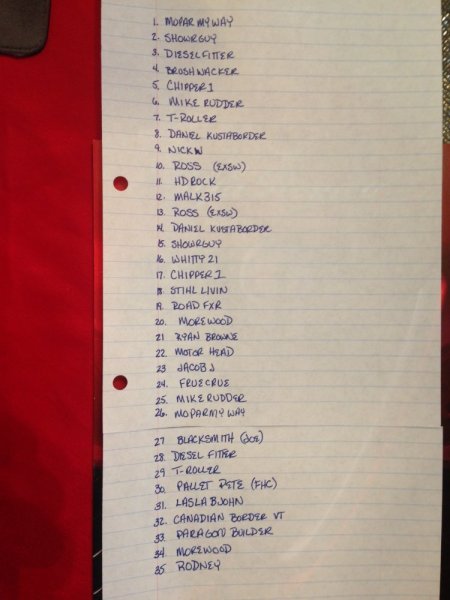 1. MOPAR MYWAY
2. SHOWRGUY
3. DIESELFITTER
4. BROSHWACKER
5. CHIPPER1
6. MIKE RUDDER
7. T-ROLLER
8. DANIEL KUSTABORDER
9. NICKW
10. ROSS (EXSW)
11. HDROCK
12. MALK315
13. ROSS (EXSW)
14. DANIEL KUSTABORDER
15. SHOWRGUY
16. WHITTY21
17. CHIPPER1
18. STIHL LIVIN
19. ROAD FXR
20. MOREWOOD
21 RYAN BROWNE
22. MOTOR HEAD
23 JACOB J
24. FRUECRUE
25. MIKERUDDER
26. MOPARMYWAY
27 BLACKSMITH (JOE)
28. DIESEL FITTER
29 T-ROLLER
30. PALLET PETE (FHC)
31. LASLABJOHN
32. CANADIAN BORDER VT
33. PARAGON BUILDER
34. MOREWOOD
35 RODNEY